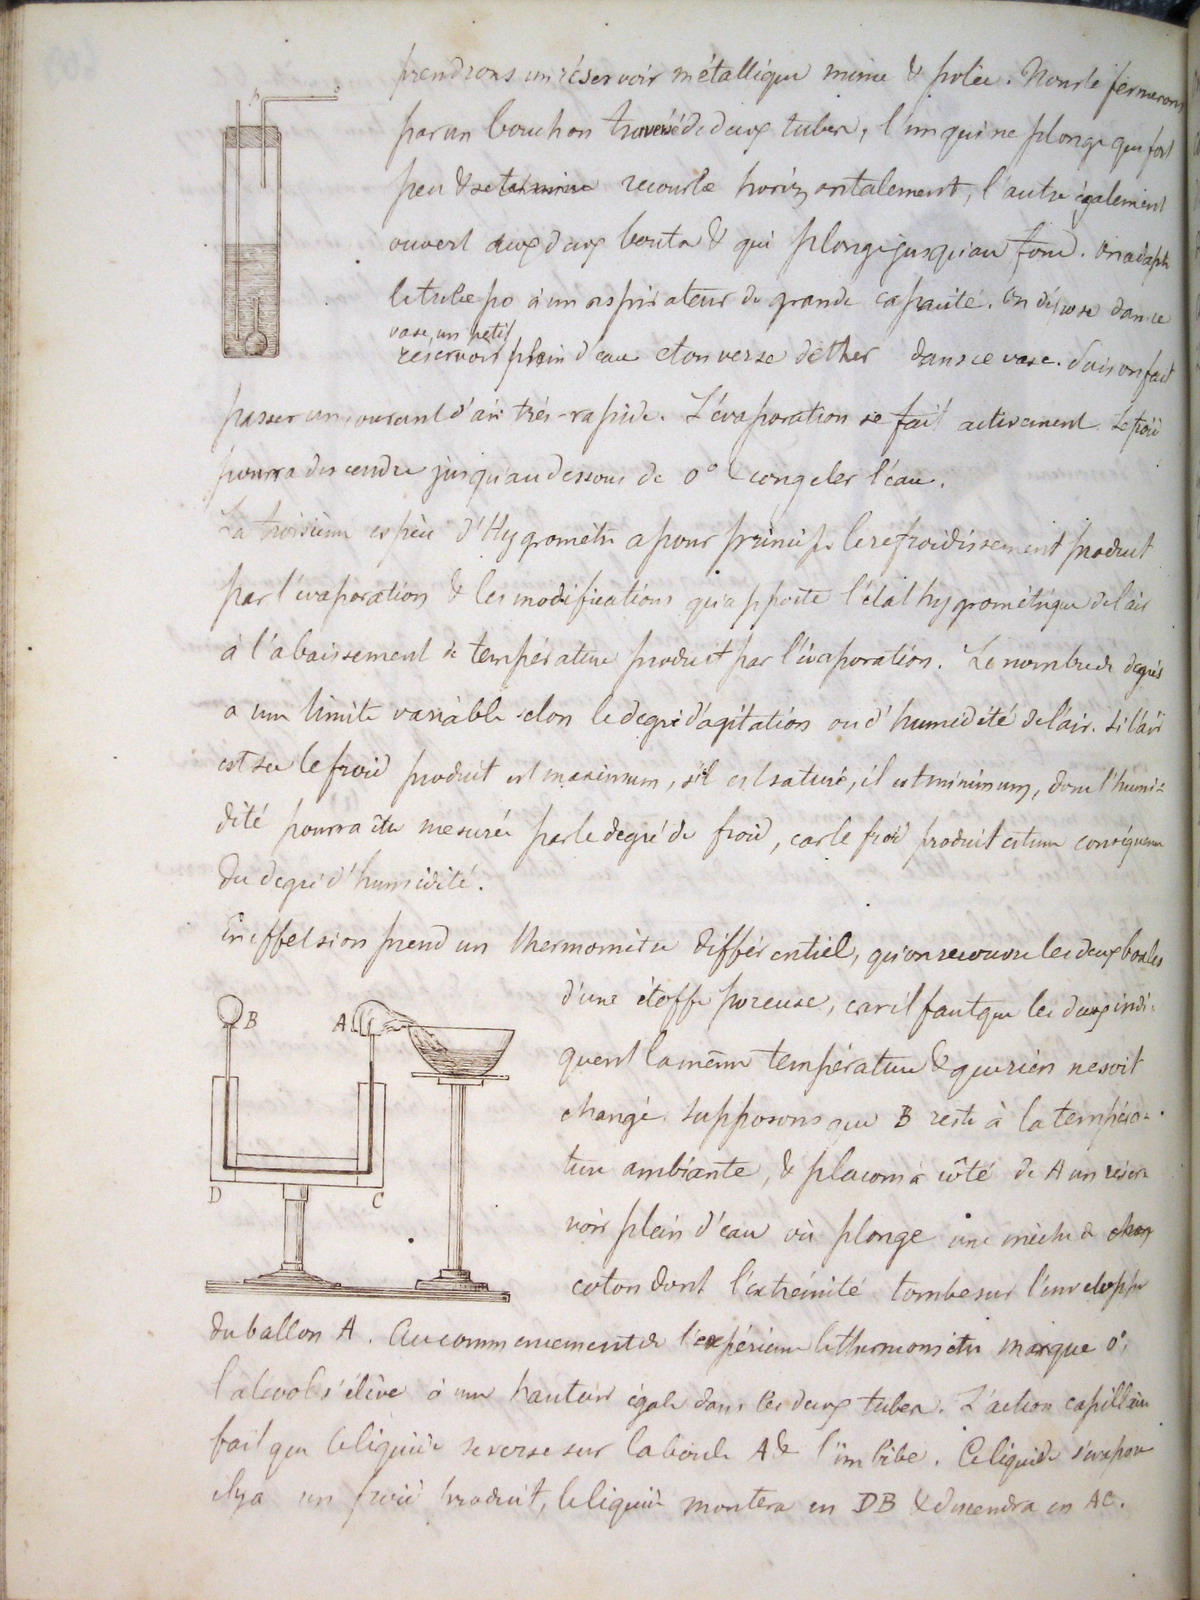 prendrons un réservoir métallique mince & polie. Nous le fermerons
par un bouchon traversé de deux tubes, l'un qui ne plonge que fort
peu & se termine recourbé horizontalement, l'autre également
ouvert aux deux bouts & qui plonge jusqu'au fond. On adapte
le tube po à un aspirateur de grande capacité. On dépose dans ce
vase, un petit
réservoir plein d'eau et on verse d'éther dans ce vase. Puis on fait
passer un courant d'air très-rapide. L'évaporation se fait activement. Le froid
pourra descendre jusqu'au dessous de 0° & congeler l'eau.
La troisième espèce d'Hygromètre a pour principe le refroidissement produit
par l'évaporation & les modifications qu'apporte l'état hygrométrique de l'air
à l'abaissement de température produit par l'évaporation. Le nombre de degrés
a une limite variable selon le degré d'agitation ou d'humidité de l'air. Si l'air
est sec le froid produit est maximum, s'il est saturé, il est minimum, donc l'humi-
dité pourra être mesurée par le degré de froid, car le froid produit est une conséquence
du degré d'humidité.
En effet si on prend un thermomètre différentiel, qu'on recouvre les deux boules
d'une étoffe poreuse, car il faut que les deux indi-
quent la même température & que rien ne soit
changé. Supposons que B reste à la tempéra-
ture ambiante, & plaçons à côté de A un réser-
voir plein d'eau où plonge une mèche de
coton dont l'extrémité tombe sur l'enveloppe
du ballon A. Au commencement de l'expérience le thermomètre marque 0°,
l'alcool s'élève à une hauteur égale dans les deux tubes. L'action capillaire
fait que le liquide se verse sur la boule A & l'imbibe. Ce liquide s'évapore
il y a un froid produit, le liquide montera en DB & descendra en AC.
B
A
D
C